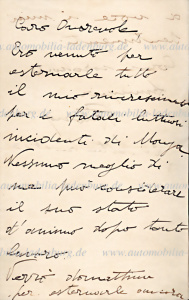 Caro Onorevole
Ero venuto per
esternarle tutto
il mio rincrescimento
per i fatali luttuosi
incidenti di Monza
Nessuno meglio di
me può considerare
il suo stato
d'animo dopo tanto
lavoro.
Verrò domattina
per esternarle ancora